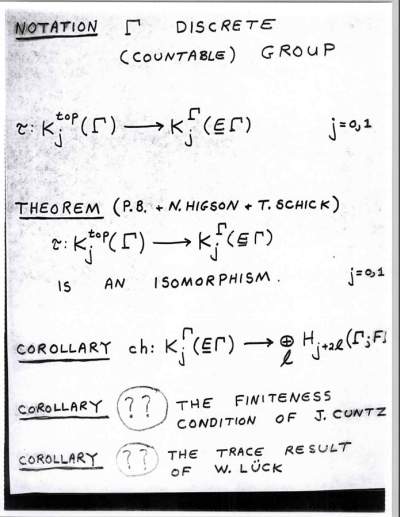 NOTATION Γ DISCRETE
(COUNTABLE) GROUP
τ: K_j^top(Γ) ⟶ K_j^Γ(E̲Γ) j=0,1
THEOREM (P.B. + N. HIGSON + T. SCHICK)
τ: K_j^top(Γ) ⟶ K_j^Γ(E̲Γ)
IS AN ISOMORPHISM. j=0,1
COROLLARY ch: K_j^Γ(E̲Γ) ⟶ ⊕_l H_{j+2l}(Γ;F
COROLLARY ?? THE FINITENESS
CONDITION OF J. CUNTZ
COROLLARY ?? THE TRACE RESULT
OF W. LÜCK